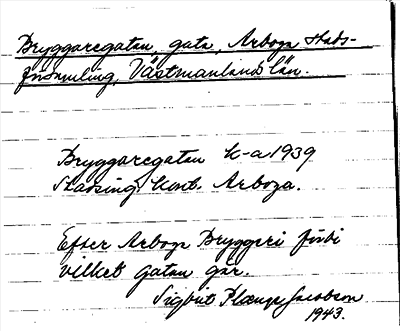 Bryggaregatan, gata, Arboga Stads-
församling, Västmanlands län.
Bryggaregatan k-a 1939
Stadsing. kont. Arboga.
Efter Arboga Bryggeri förbi
vilket gatan går.
Sigbrit Plænge Jacobson
1943.